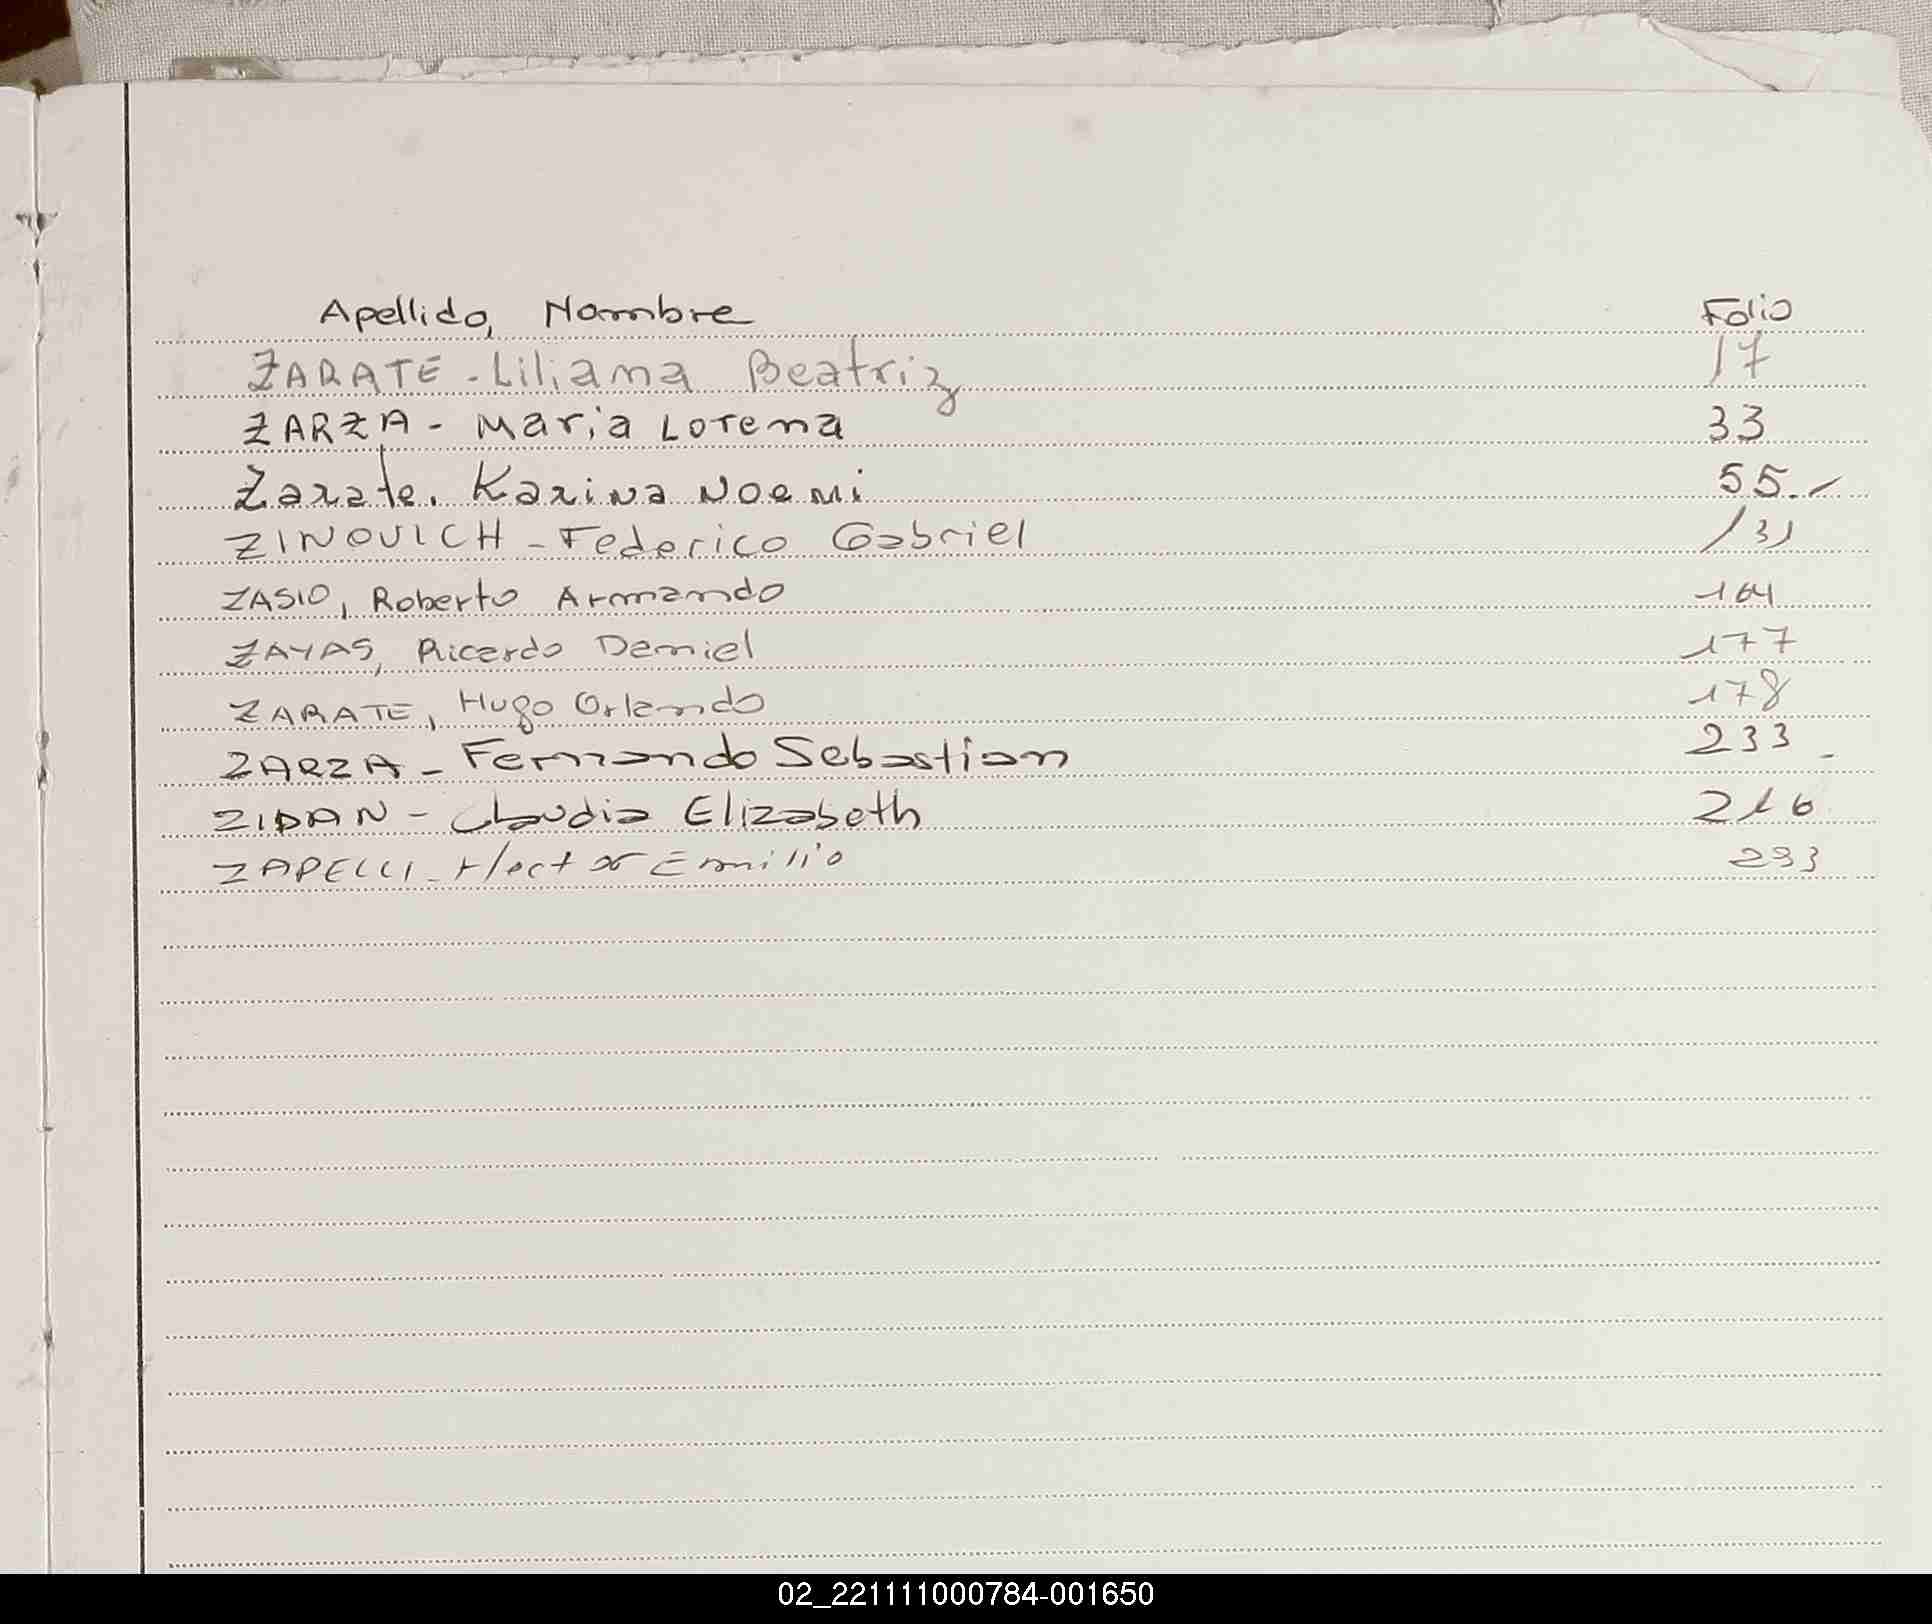 Apellido, Nombre Folio
ZARATE - Liliana Beatriz 17
ZARZA - Maria Lorena 33
Zarate. Karina Noemi 55.-
ZINOVICH - Federico Gabriel 131
ZASIO, Roberto Armando 164
ZAYAS, Ricardo Daniel 177
ZARATE, Hugo Orlando 178
ZARZA - Fernando Sebastian 233 -
ZIDAN - Claudia Elizabeth 216
ZAPELLI - Hector Emilio 293
02_221111000784-001650